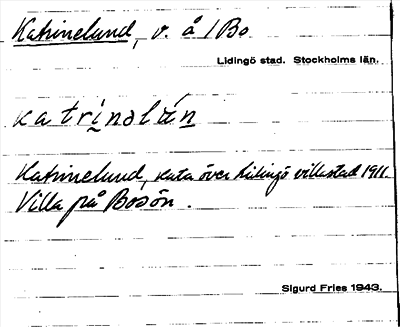 Katrinelund, v. å 1 Bo.
Lidingö stad. Stockholms län.
katrinəlún
Katrinelund, karta över Lidingö villastad 1911.
Villa på Bosön.
Sigurd Fries 1943.